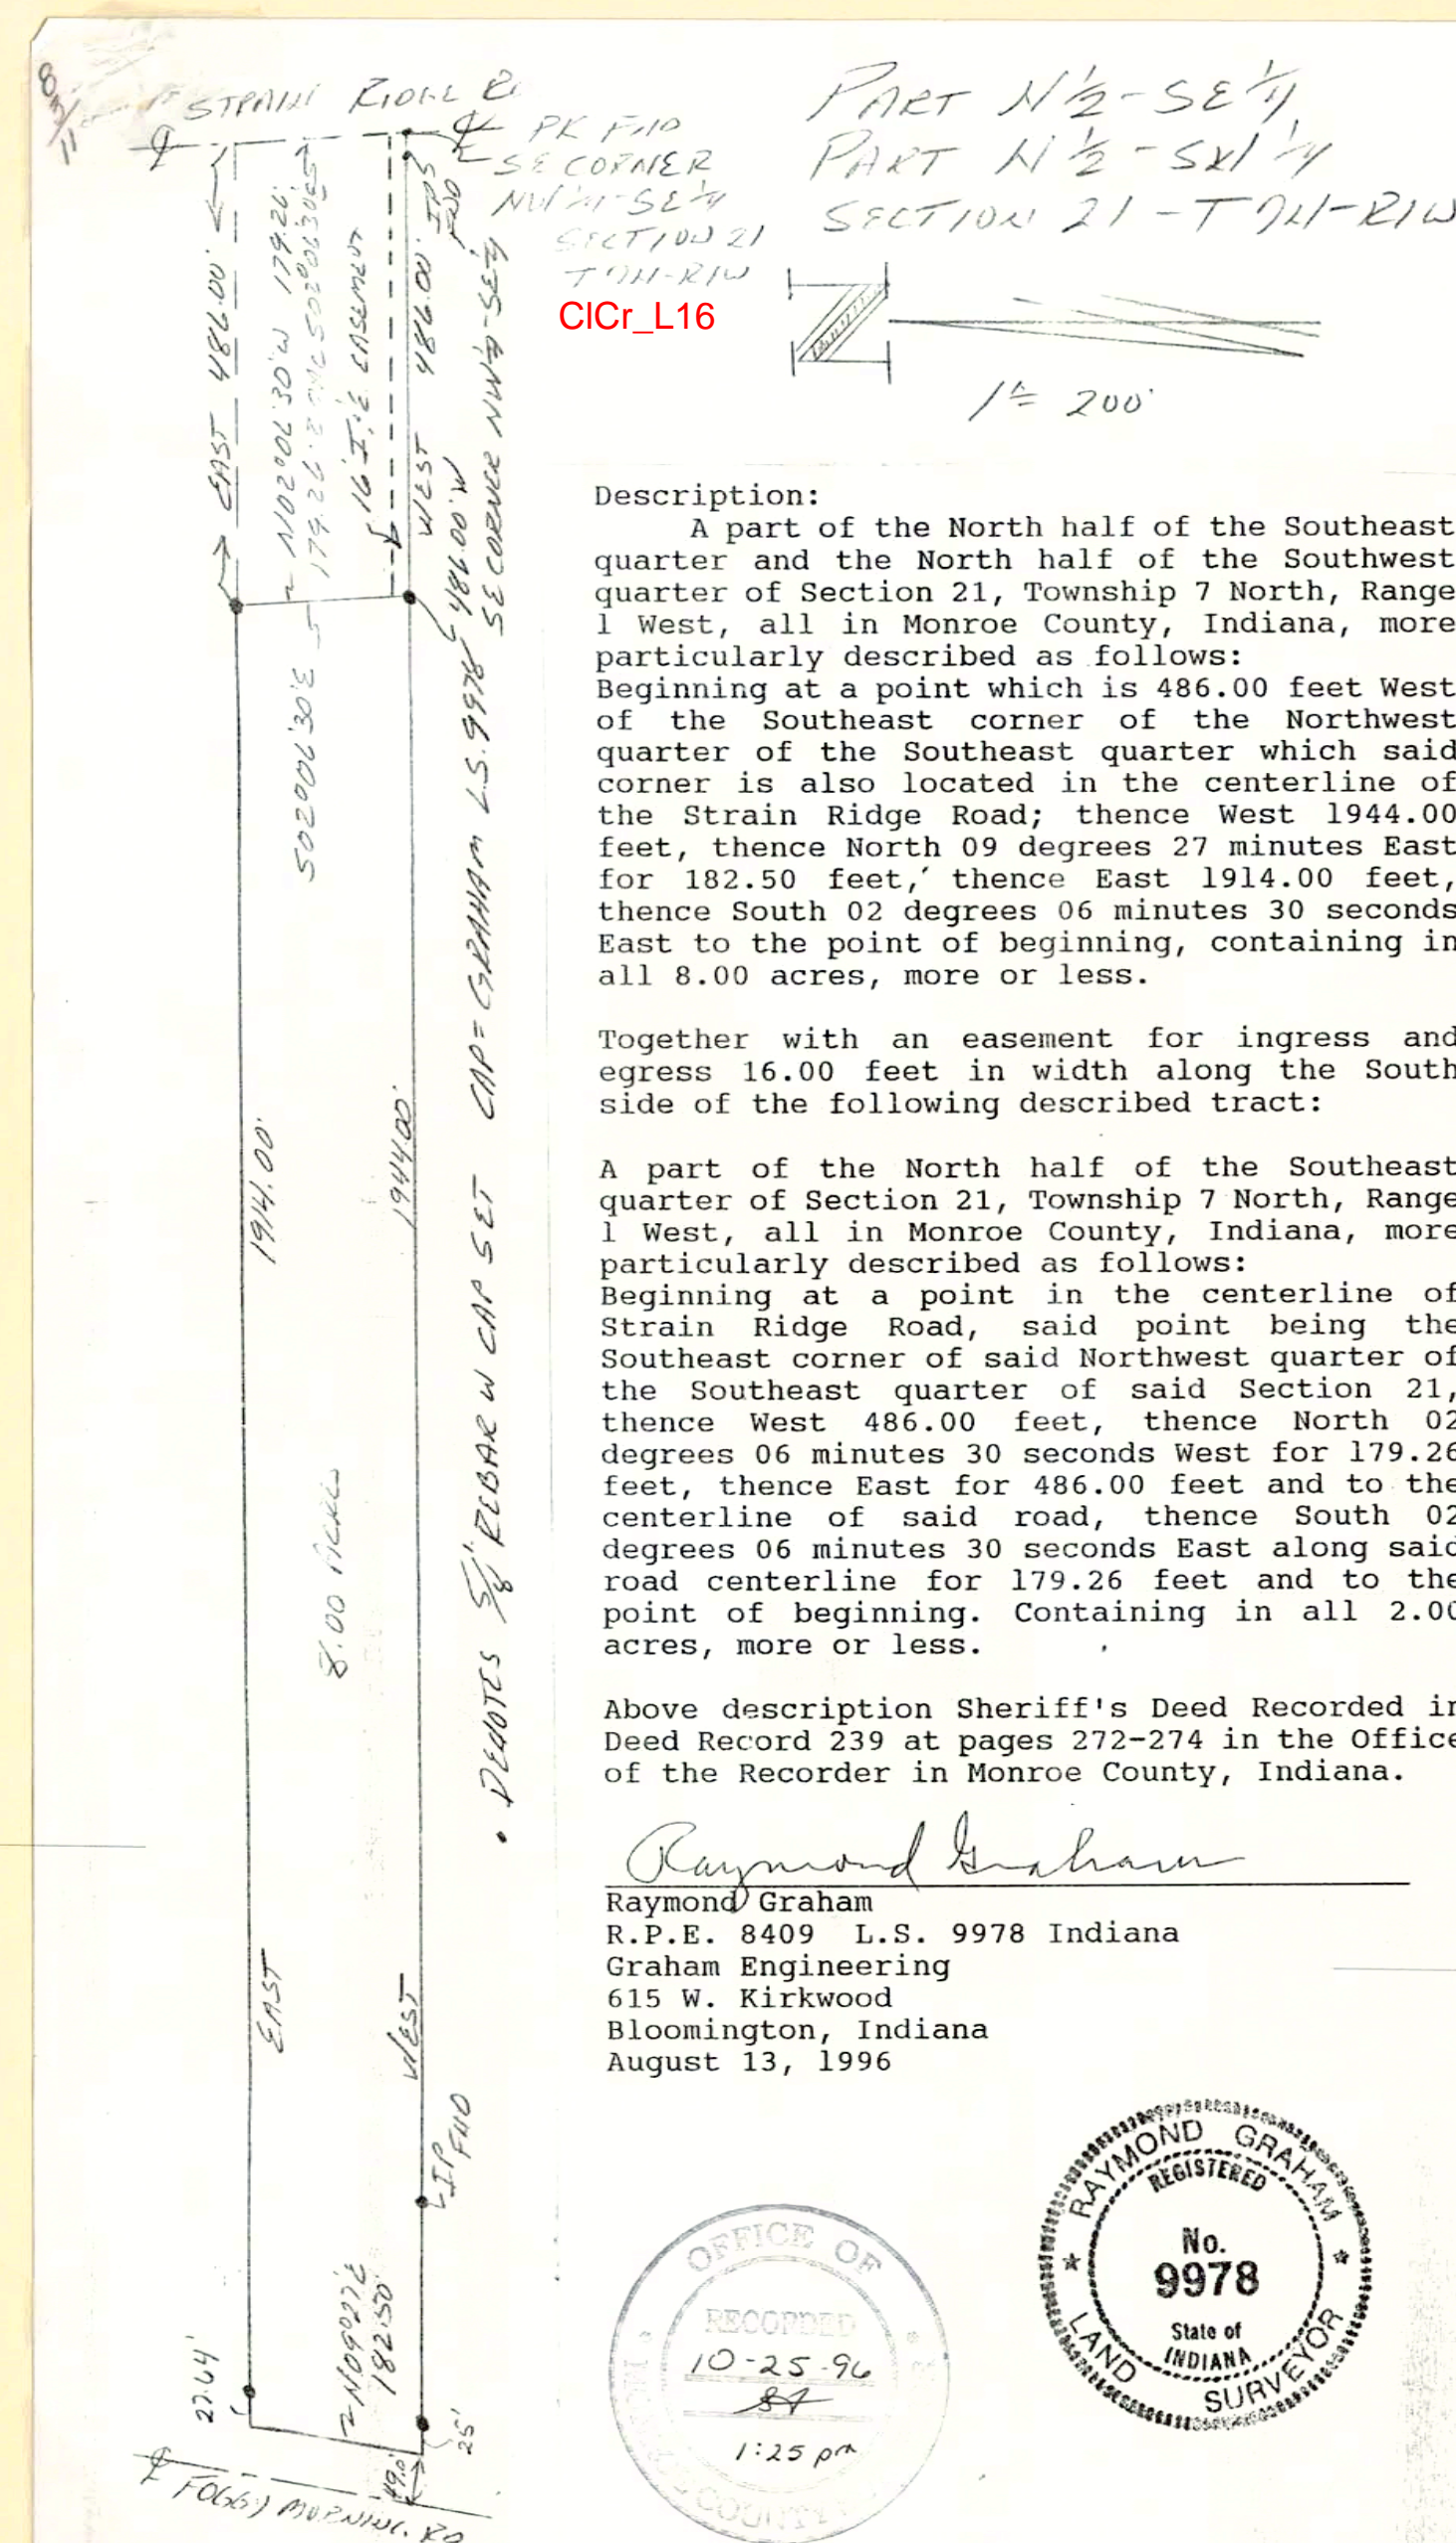 8
3/
11
STRAIN RIDGE R
PK FND
SE CORNER
NW 1/4-SE 1/4
SECTION 21
T7N-R1W
PART N 1/2 - SE 1/4
PART N 1/2 - SW 1/4
SECTION 21 - T7N-R1W
ClCr_L16
1"= 200'
EAST 486.00'
N02°06'30"W 179.26'
179.26'
S02°06'30"E
16' I & E EASEMENT
WEST 486.00'
IPS
FND
486.00' W
SE CORNER NW 1/4-SE 1/4
S02°06'30"E
1914.00'
1944.00'
8.00 ACRES
EAST
WEST
IP FND
• DENOTES 5/8" REBAR W CAP SET CAP = GRAHAM L.S. 9978
N09°27'E
182.50'
27.64'
25'
49.0'
FOGGY MORNING RD
Description:
A part of the North half of the Southeast
quarter and the North half of the Southwest
quarter of Section 21, Township 7 North, Range
1 West, all in Monroe County, Indiana, more
particularly described as follows:
Beginning at a point which is 486.00 feet West
of the Southeast corner of the Northwest
quarter of the Southeast quarter which said
corner is also located in the centerline of
the Strain Ridge Road; thence West 1944.00
feet, thence North 09 degrees 27 minutes East
for 182.50 feet, thence East 1914.00 feet,
thence South 02 degrees 06 minutes 30 seconds
East to the point of beginning, containing in
all 8.00 acres, more or less.
Together with an easement for ingress and
egress 16.00 feet in width along the South
side of the following described tract:
A part of the North half of the Southeast
quarter of Section 21, Township 7 North, Range
1 West, all in Monroe County, Indiana, more
particularly described as follows:
Beginning at a point in the centerline of
Strain Ridge Road, said point being the
Southeast corner of said Northwest quarter of
the Southeast quarter of said Section 21,
thence West 486.00 feet, thence North 02
degrees 06 minutes 30 seconds West for 179.26
feet, thence East for 486.00 feet and to the
centerline of said road, thence South 02
degrees 06 minutes 30 seconds East along said
road centerline for 179.26 feet and to the
point of beginning. Containing in all 2.00
acres, more or less.
Above description Sheriff's Deed Recorded in
Deed Record 239 at pages 272-274 in the Office
of the Recorder in Monroe County, Indiana.
Raymond Graham
Raymond Graham
R.P.E. 8409 L.S. 9978 Indiana
Graham Engineering
615 W. Kirkwood
Bloomington, Indiana
August 13, 1996
OFFICE OF
RECORDED
10-25-96
1:25 pm
COUNTY
RAYMOND GRAHAM
REGISTERED
No.
9978
State of
INDIANA
LAND SURVEYOR